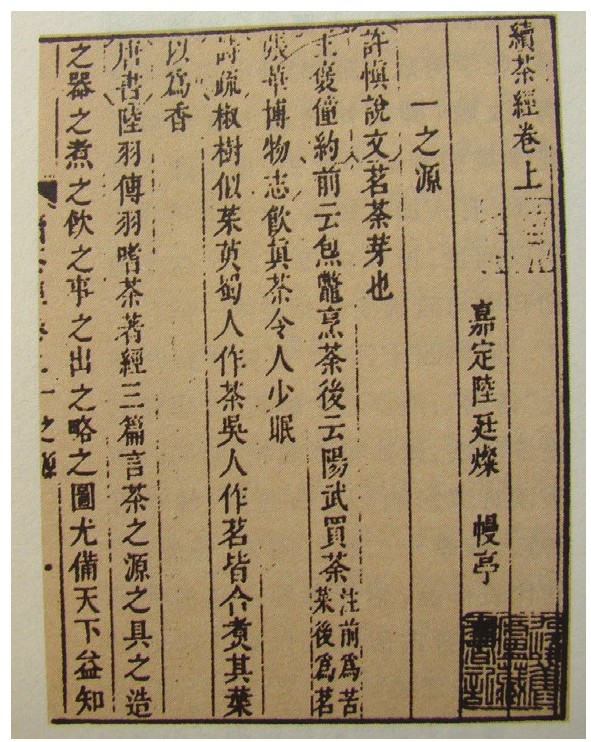 續茶經卷上
嘉定陸廷燦 幔亭
一之源
許慎說文茗荼芽也
王褒僮約前云炰鼈烹茶後云陽武買茶注前爲苦菜後爲茗
張華博物志飲真茶令人少眠
詩疏椒樹似茱萸蜀人作茶吳人作茗皆合煑其葉
以爲香
唐書陸羽傳羽嗜茶著經三篇言茶之源之具之造
之器之煮之飲之事之出之略之圖尤備天下益知
續茶經卷上一之源